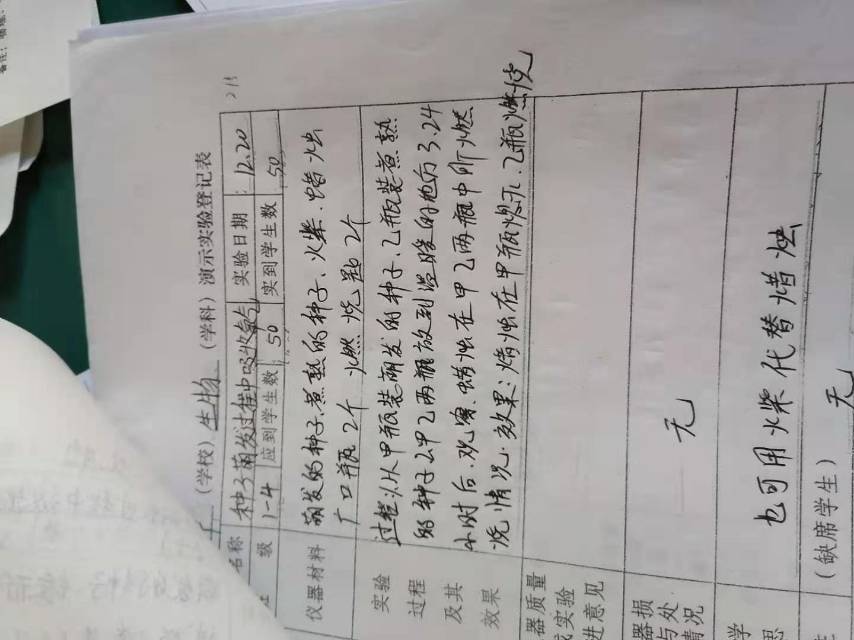 (学校) 生物 (学科) 演示实验登记表
名称 种子萌发过程中吸收氧气 实验日期 12.20
级 1-4 应到学生数 50 实到学生数 50
仪器材料 萌发的种子、煮熟的种子、火柴、蜡烛
广口瓶2个 燃烧匙2个
实验过程及其效果
过程:1、从甲瓶装萌发的种子、乙瓶装煮熟
的种子 2、甲乙两瓶放到温暖的地方 3、24
小时后、观察、蜡烛在甲乙两瓶中所燃
烧情况. 效果:蜡烛在甲瓶熄灭、乙瓶燃烧
器质量
实验
进意见
器损
与处
情况
无
学
思
也可用火柴代替蜡烛
(缺席学生)
无